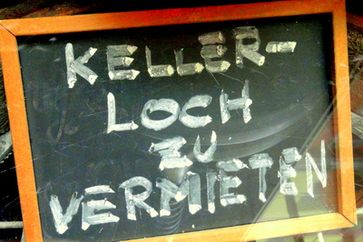 KELLER-
LOCH
ZU
VERMIETEN